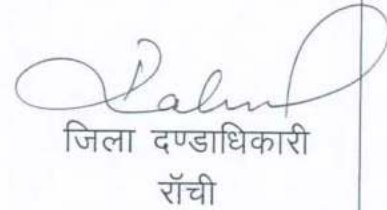 जिला दण्डाधिकारी
राँची